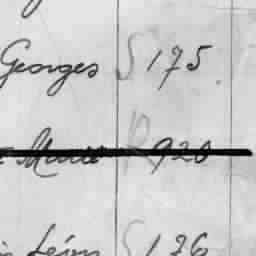 Georges S 175
Marie R 920
Léon S 176